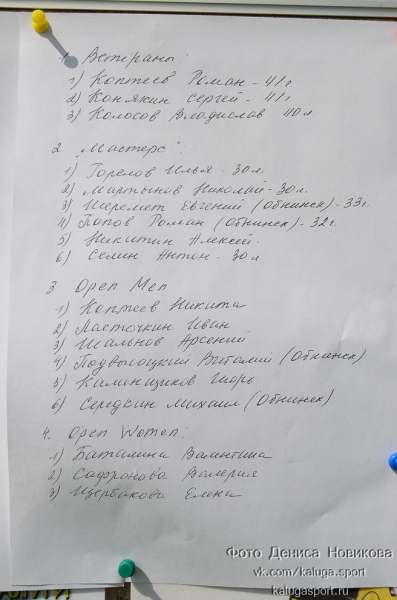 1. Ветераны:
1) Коптеев Роман - 41г
2) Конякин Сергей - 41г
3) Колосов Владислав 40л
2. "Мастерс":
1) Горелов Илья - 30л.
2) Мартынов Николай - 30л.
3) Шеремет Евгений (Обнинск) - 33г.
4) Попов Роман (Обнинск) - 32г.
5) Никитин Алексей.
6) Селин Антон - 30л
3 Open Men
1) Коптеев Никита
2) Ласточкин Иван
3) Шальнов Арсений
4) Подвысоцкий Виталий (Обнинск)
5) Калинщиков Игорь
6) Середкин Михаил (Обнинск)
4. Open Women:
1) Баталина Валентина
2) Сафронова Валерия
3) Щербакова Елена
Фото Дениса Новикова
vk.com/kaluga.sport
kalugasport.ru